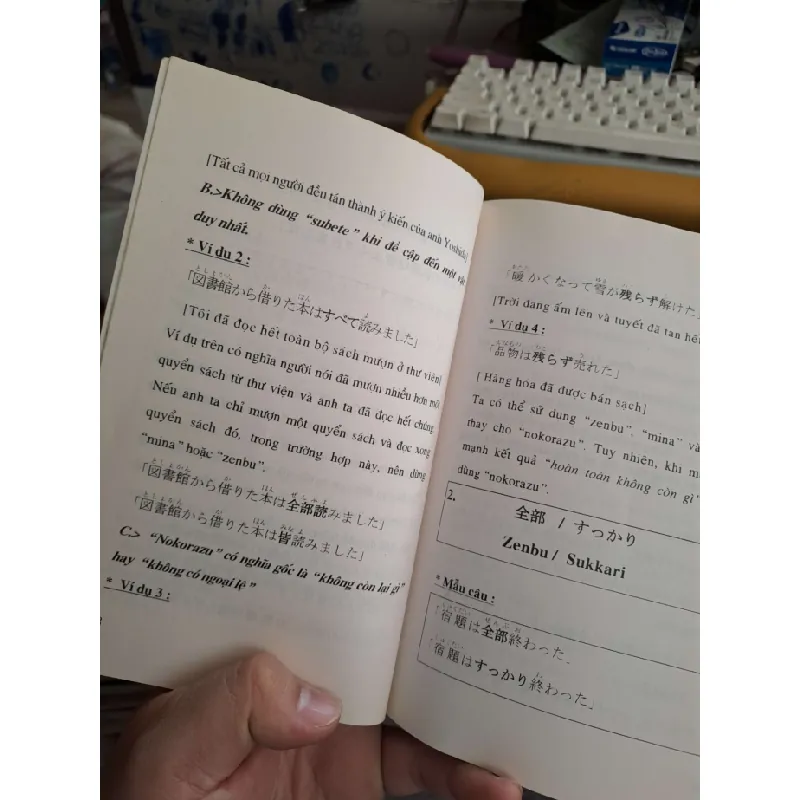 [Tất cả mọi người đều tán thành ý kiến của anh Yoshida]
B.>Không dùng “subete” khi đề cập đến một vật
duy nhất.
* Ví dụ 2 :
「図書館から借りた本はすべて読みました」
[Tôi đã đọc hết toàn bộ sách mượn ở thư viện]
Ví dụ trên có nghĩa người nói đã mượn nhiều hơn một
quyển sách từ thư viện và anh ta đã đọc hết chúng.
Nếu anh ta chỉ mượn một quyển sách và đọc xong
quyển sách đó, trong trường hợp này, nên dùng
“mina” hoặc “zenbu”.
「図書館から借りた本は全部読みました」
「図書館から借りた本は皆読みました」
C> “Nokorazu” có nghĩa gốc là “không còn lại gì”
hay “không có ngoại lệ”
* Ví dụ 3 :
「暖かくなって雪が残らず解けた」
[Trời đang ấm lên và tuyết đã tan hết
* Ví dụ 4 :
「品物は残らず売れた」
[Hàng hóa đã được bán sạch]
Ta có thể sử dụng “zenbu”, “mina” và
thay cho “nokorazu”. Tuy nhiên, khi m
mạnh kết quả “hoàn toàn không còn gì”
dùng “nokorazu”.
2.
全部 / すっかり
Zenbu / Sukkari
* Mẫu câu :
「宿題は全部終わった」
「宿題はすっかり終わった」